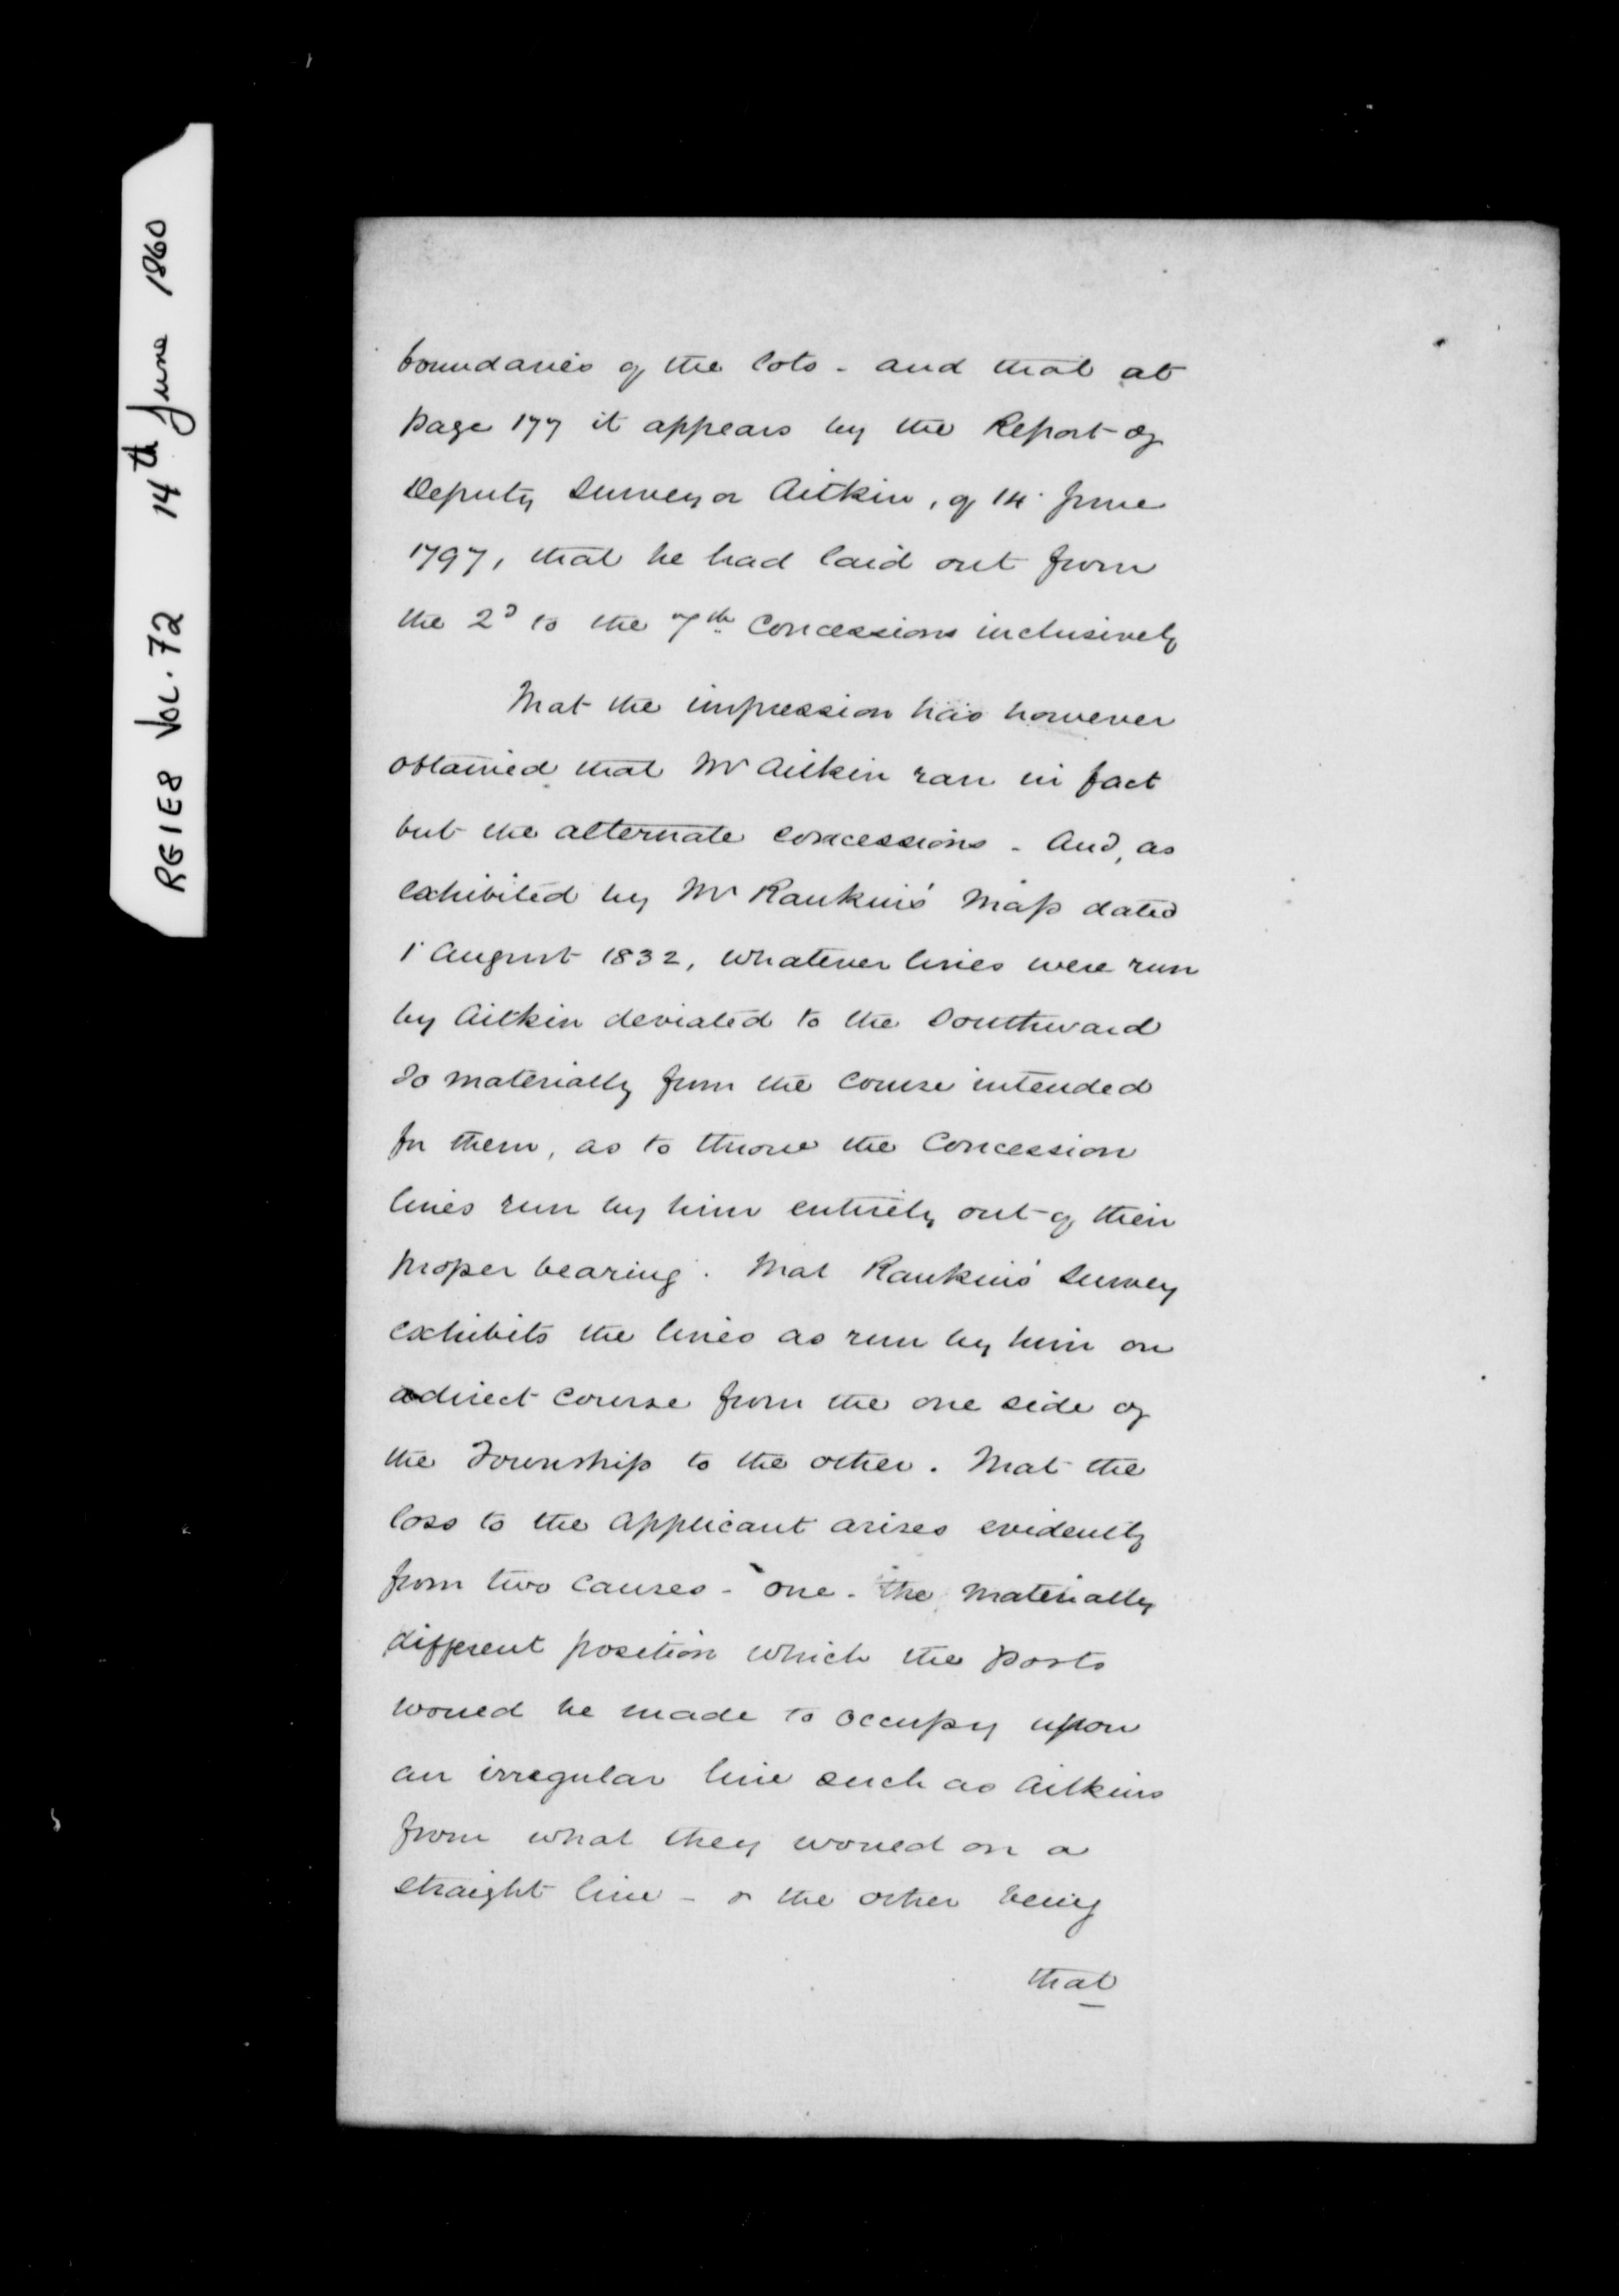 RG1E8 VOL. 72 14th June 1860
boundaries of the lots - and that at
page 177 it appears by the Report of
Deputy Surveyor Aitkin, of 14 June
1797, that he had laid out from
the 2d to the 7th Concessions inclusively
That the impression has however
obtained that Mr Aitkin ran in fact
but the alternate concessions - And, as
exhibited by Mr Rankin's Map dated
1 August 1832, whatever lines were run
by Aitkin deviated to the Southward
so materially from the course intended
for them, as to throw the Concession
lines run by him entirely out of their
proper bearing. That Rankin's Survey
exhibits the lines as run by him on
a direct course from the one side of
the Township to the other. That the
loss to the Applicant arises evidently
from two causes - one - the materially
different position which the posts
would be made to occupy upon
an irregular line such as Aitkins
from what they would on a
straight line - & the other being
that